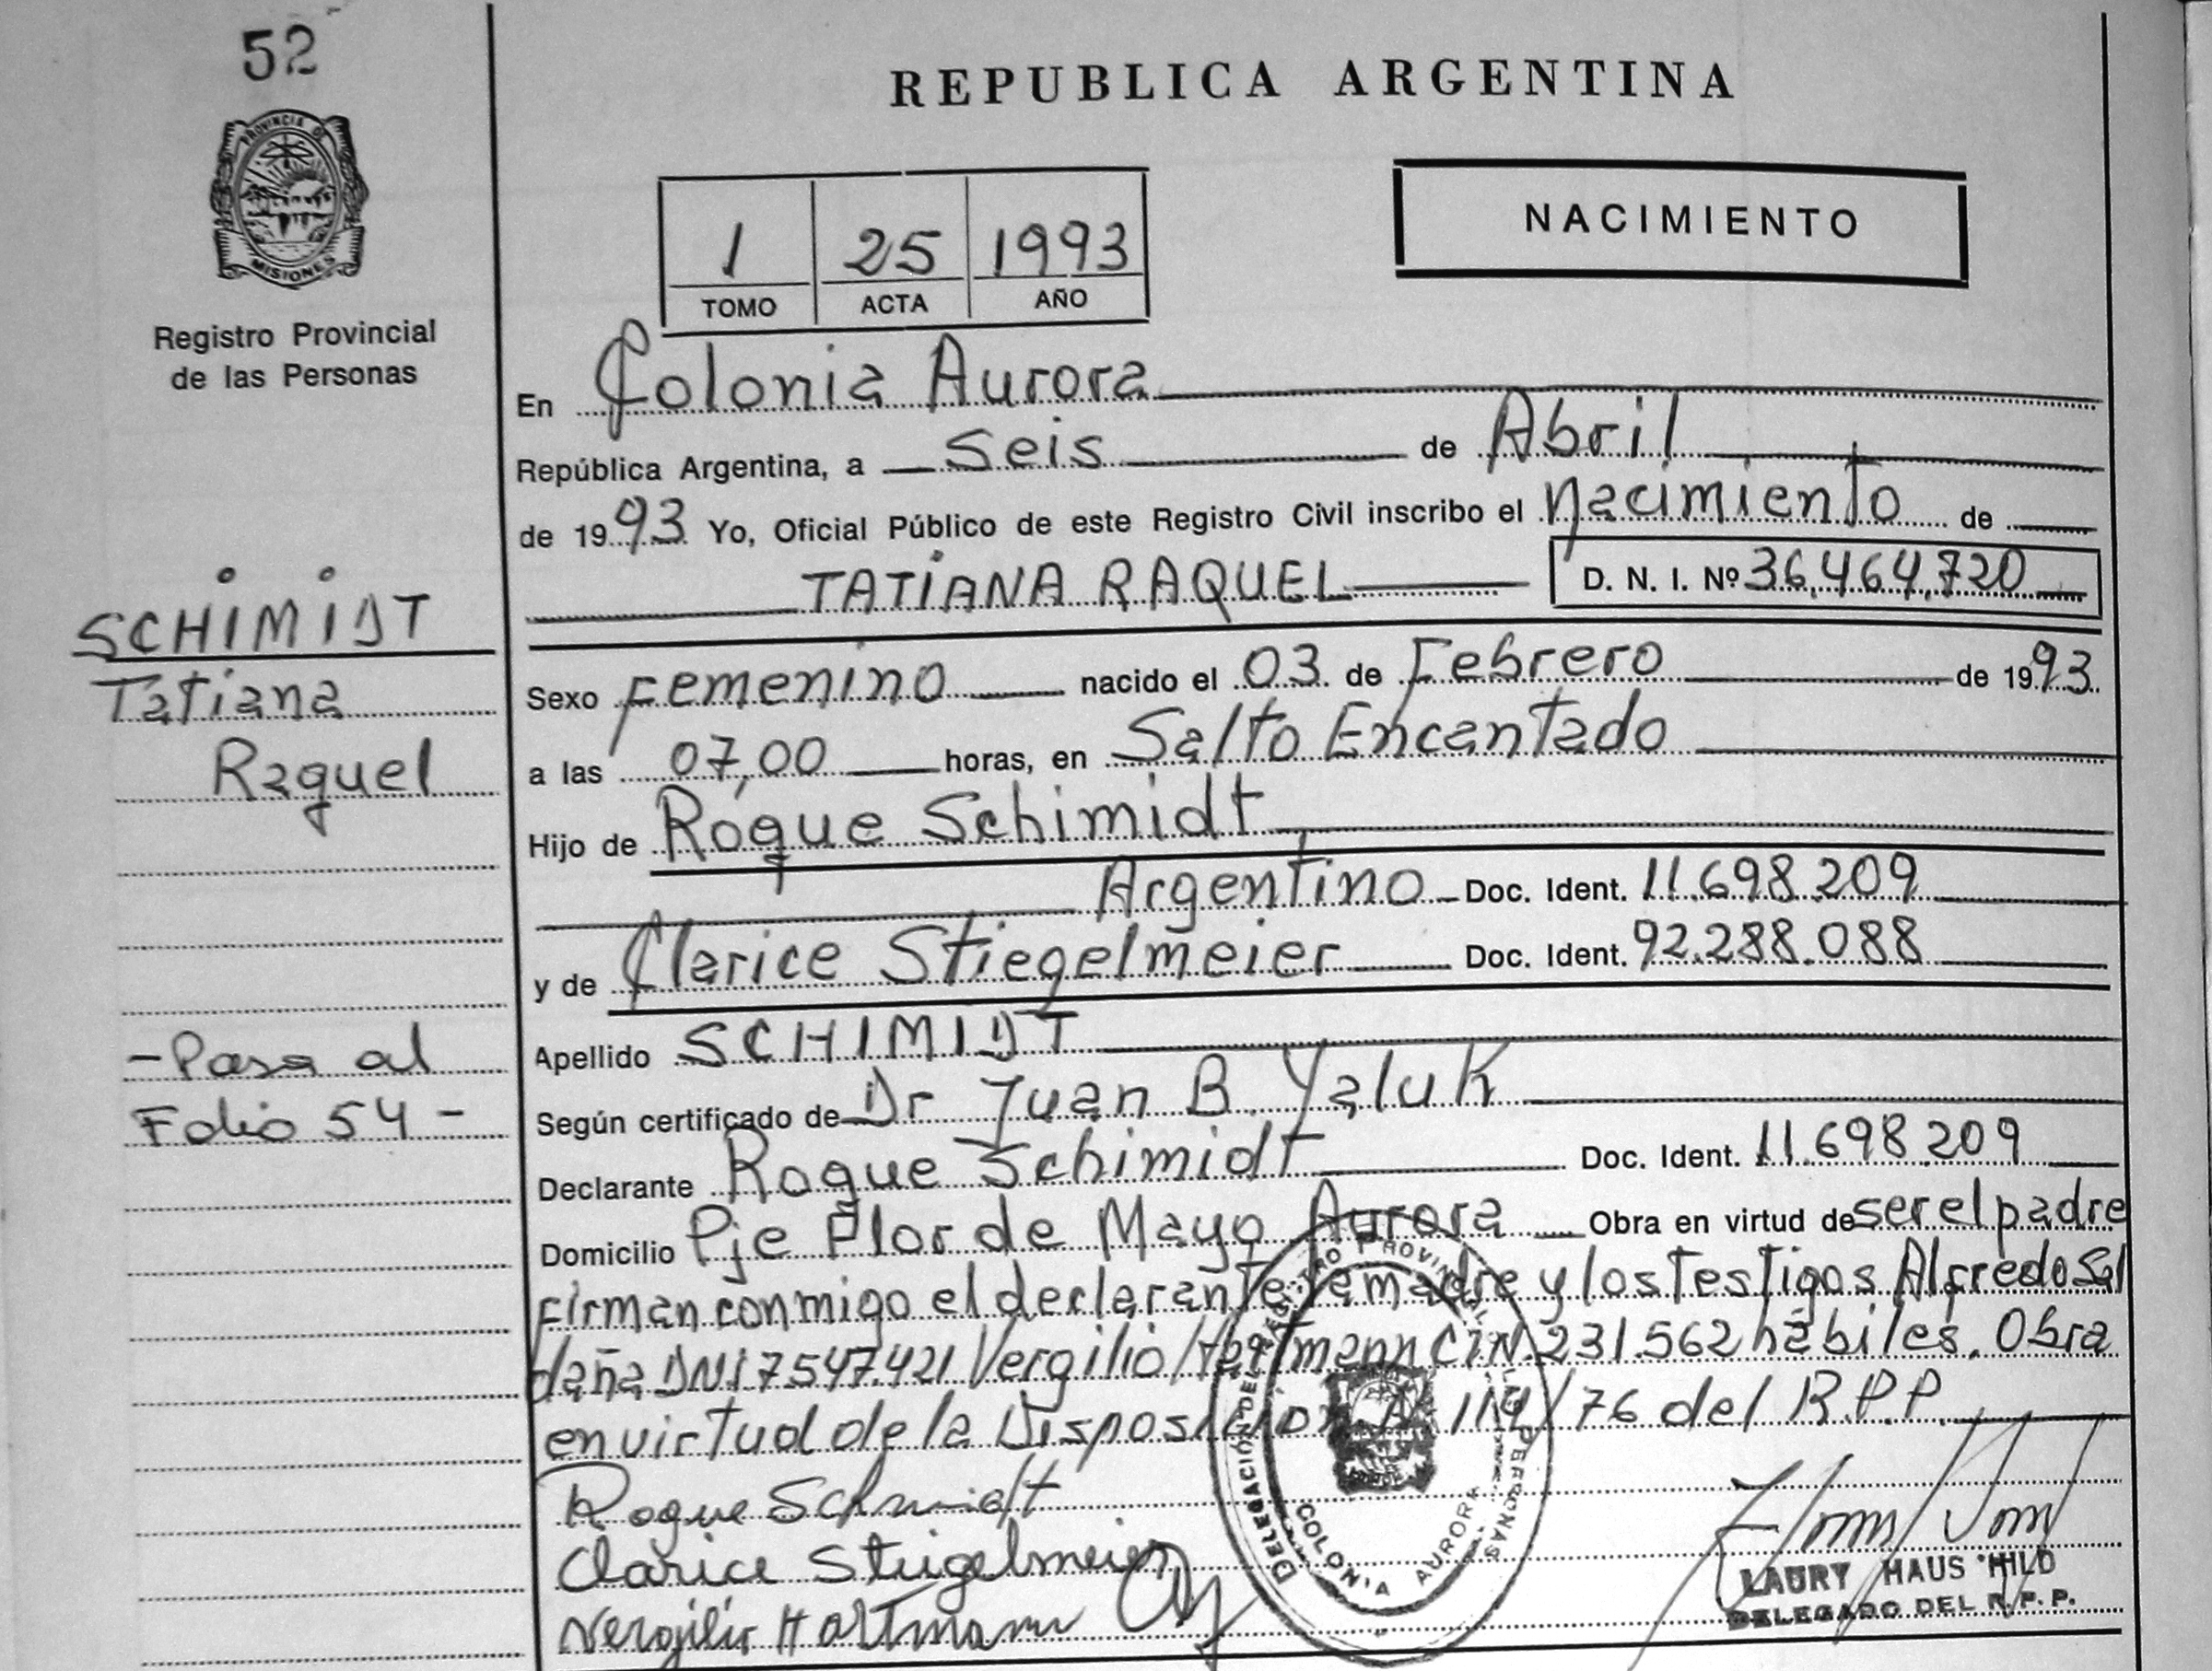 52
REPUBLICA ARGENTINA
PROVINCIA DE
MISIONES
Registro Provincial
de las Personas
1 25 1993
TOMO ACTA AÑO
NACIMIENTO
En Colonia Aurora
República Argentina, a seis de Abril
de 1993 Yo, Oficial Público de este Registro Civil inscribo el nacimiento de
TATIANA RAQUEL D. N. I. Nº 36,464,720
SCHIMIDT
Tatiana
Raquel
Sexo Femenino nacido el 03 de Febrero de 1993
a las 07,00 horas, en Salto Encantado
Hijo de Roque Schimidt
Argentino Doc. Ident. 11.698.209
y de Clarice Stiegelmeier Doc. Ident. 92.288.088
Apellido SCHIMIDT
- Pasa al
Folio 54 -
Según certificado de Dr Juan B. Yaluk
Declarante Roque Schimidt Doc. Ident. 11.698.209
Domicilio Pje Flor de Mayo Aurora Obra en virtud de ser el padre
Firman conmigo el declarante, la madre y los testigos Alfredo Sal
daña DNI 7.547.421 Vergilio Hartmann CIN. 231.562 hábiles. Obra
en virtud de la Disposición Nº 114/76 del R.P.P.
Roque Schmidt
Clarice Stiegelmeier
Vergilio Hartmann
DELEGACIÓN DEL REGISTRO PROVINCIAL DE LAS PERSONAS
COLONIA AURORA
LAURY HAUS HILD
DELEGADO DEL R.P.P.